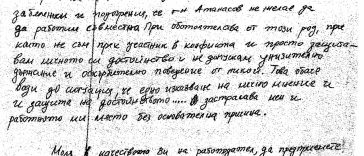 забележки и подозрения, че г-н Атанасов не желае да
да работим съвместно. При обстоятелства от този род, при
които не съм пряк участник в конфликта и просто защита-
вам личното си достойнство и не допускам унизително
държание и оскърбително поведение от никого. Това обаче
води до ситуация, че едно изказване на лично мнение и
и защита на достойнството ..... застрашава мен и
работното ми място без основателна причина.
Моля в качеството Ви на работодател, да предприемете